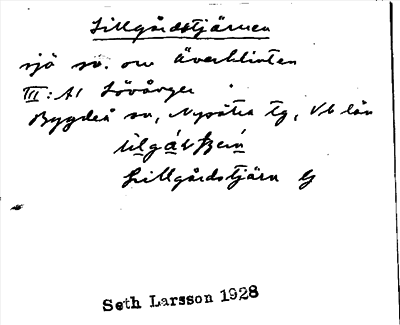 Lillgårdstjärnen
sjö sv. om Överklinten
III:A1 Lövånger
Bygdeå sn, Nysätra tg, Vb län
Lillgårdstjärn G
Seth Larsson 1928